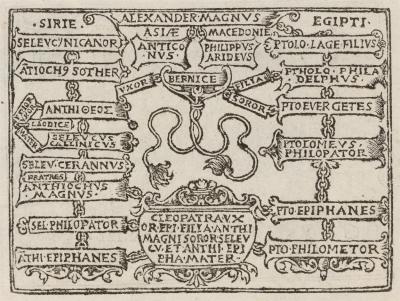 ALEXANDER MAGNVS
SIRIE
ASIÆ
MACEDONIE
EGIPTI
SELEVCꝰ NICANOR
ANTIGO
NVS
PHILIPPVS
ARIDEVS
PTOLO LAGE FILIVS
ATIOCH9 SOTHER
VXOR
BERNICE
FILIA
SOROR
PTHOLO PHILA
DELPHVS
ANTHIΘEOS
PTO EVERGETES
LAODICE
SELEVCVS
CALLINICVS
PTOLOMEVS
PHILOPATOR
SELEV CERANNVS
FRATRES
ANTHIOCHVS
MAGNVS
SEL PHILOPATOR
PTO EPIPHANES
ATHI EPIPHANES
PTO PHILOMETOR
CLEOPATRA VX
OR EPI FILYA ANTHI
MAGNI SOROR SELEV
QVE T ANTHI EPI
PHA MATER